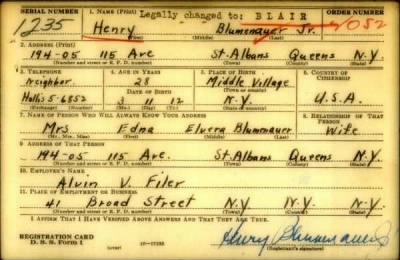 SERIAL NUMBER 1. NAME (Print) Legally changed to: BLAIR ORDER NUMBER
1235 Henry Blumenauer Jr. 2052
(First) (Middle) (Last)
2. ADDRESS (Print)
194-05 115 Ave St. Albans Queens N.Y.
(Number and street or R. F. D. number) (Town) (County) (State)
3. TELEPHONE 4. AGE IN YEARS 5. PLACE OF BIRTH 6. COUNTRY OF CITIZENSHIP
Neighbor 28 Middle Village
DATE OF BIRTH (Town or county)
Hollis 5-6852 3 11 12 N.Y. U.S.A.
(Exchange) (Number) (Mo.) (Day) (Yr.) (State or country)
7. NAME OF PERSON WHO WILL ALWAYS KNOW YOUR ADDRESS 8. RELATIONSHIP OF THAT PERSON
Mrs Edna Elvera Blumenauer Wife
(Mr., Mrs., Miss) (First) (Middle) (Last)
9. ADDRESS OF THAT PERSON
194-05 115 Ave. St. Albans Queens N.Y.
(Number and street or R. F. D. number) (Town) (County) (State)
10. EMPLOYER'S NAME
Alvin V. Filer
11. PLACE OF EMPLOYMENT OR BUSINESS
41 Broad Street N.Y. N.Y. N.Y.
(Number and street or R. F. D. number) (Town) (County) (State)
I AFFIRM THAT I HAVE VERIFIED ABOVE ANSWERS AND THAT THEY ARE TRUE.
REGISTRATION CARD
D. S. S. Form 1 Henry Blumenauer Jr
(Registrant's signature)